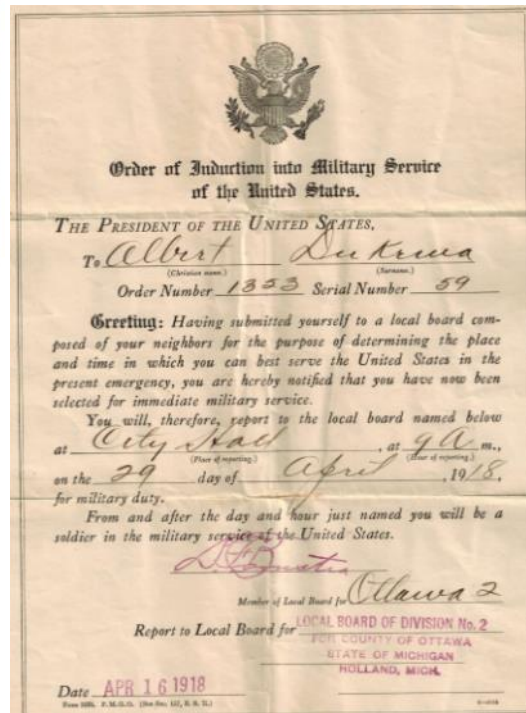 Order of Induction into Military Service
of the United States.
THE PRESIDENT OF THE UNITED STATES,
To Albert
(Christian name.) (Surname.)
Order Number 1353 Serial Number 59
Greeting: Having submitted yourself to a local board com-
posed of your neighbors for the purpose of determining the place
and time in which you can best serve the United States in the
present emergency, you are hereby notified that you have now been
selected for immediate military service.
You will, therefore, report to the local board named below
at City Hall, at 9 A m.,
(Place of reporting.) (Hour of reporting.)
on the 29 day of April, 1918,
for military duty.
From and after the day and hour just named you will be a
soldier in the military service of the United States.
Member of Local Board for Ottawa 2
Report to Local Board for LOCAL BOARD OF DIVISION No. 2
FOR COUNTY OF OTTAWA
STATE OF MICHIGAN
HOLLAND, MICH.
Date APR 16 1918